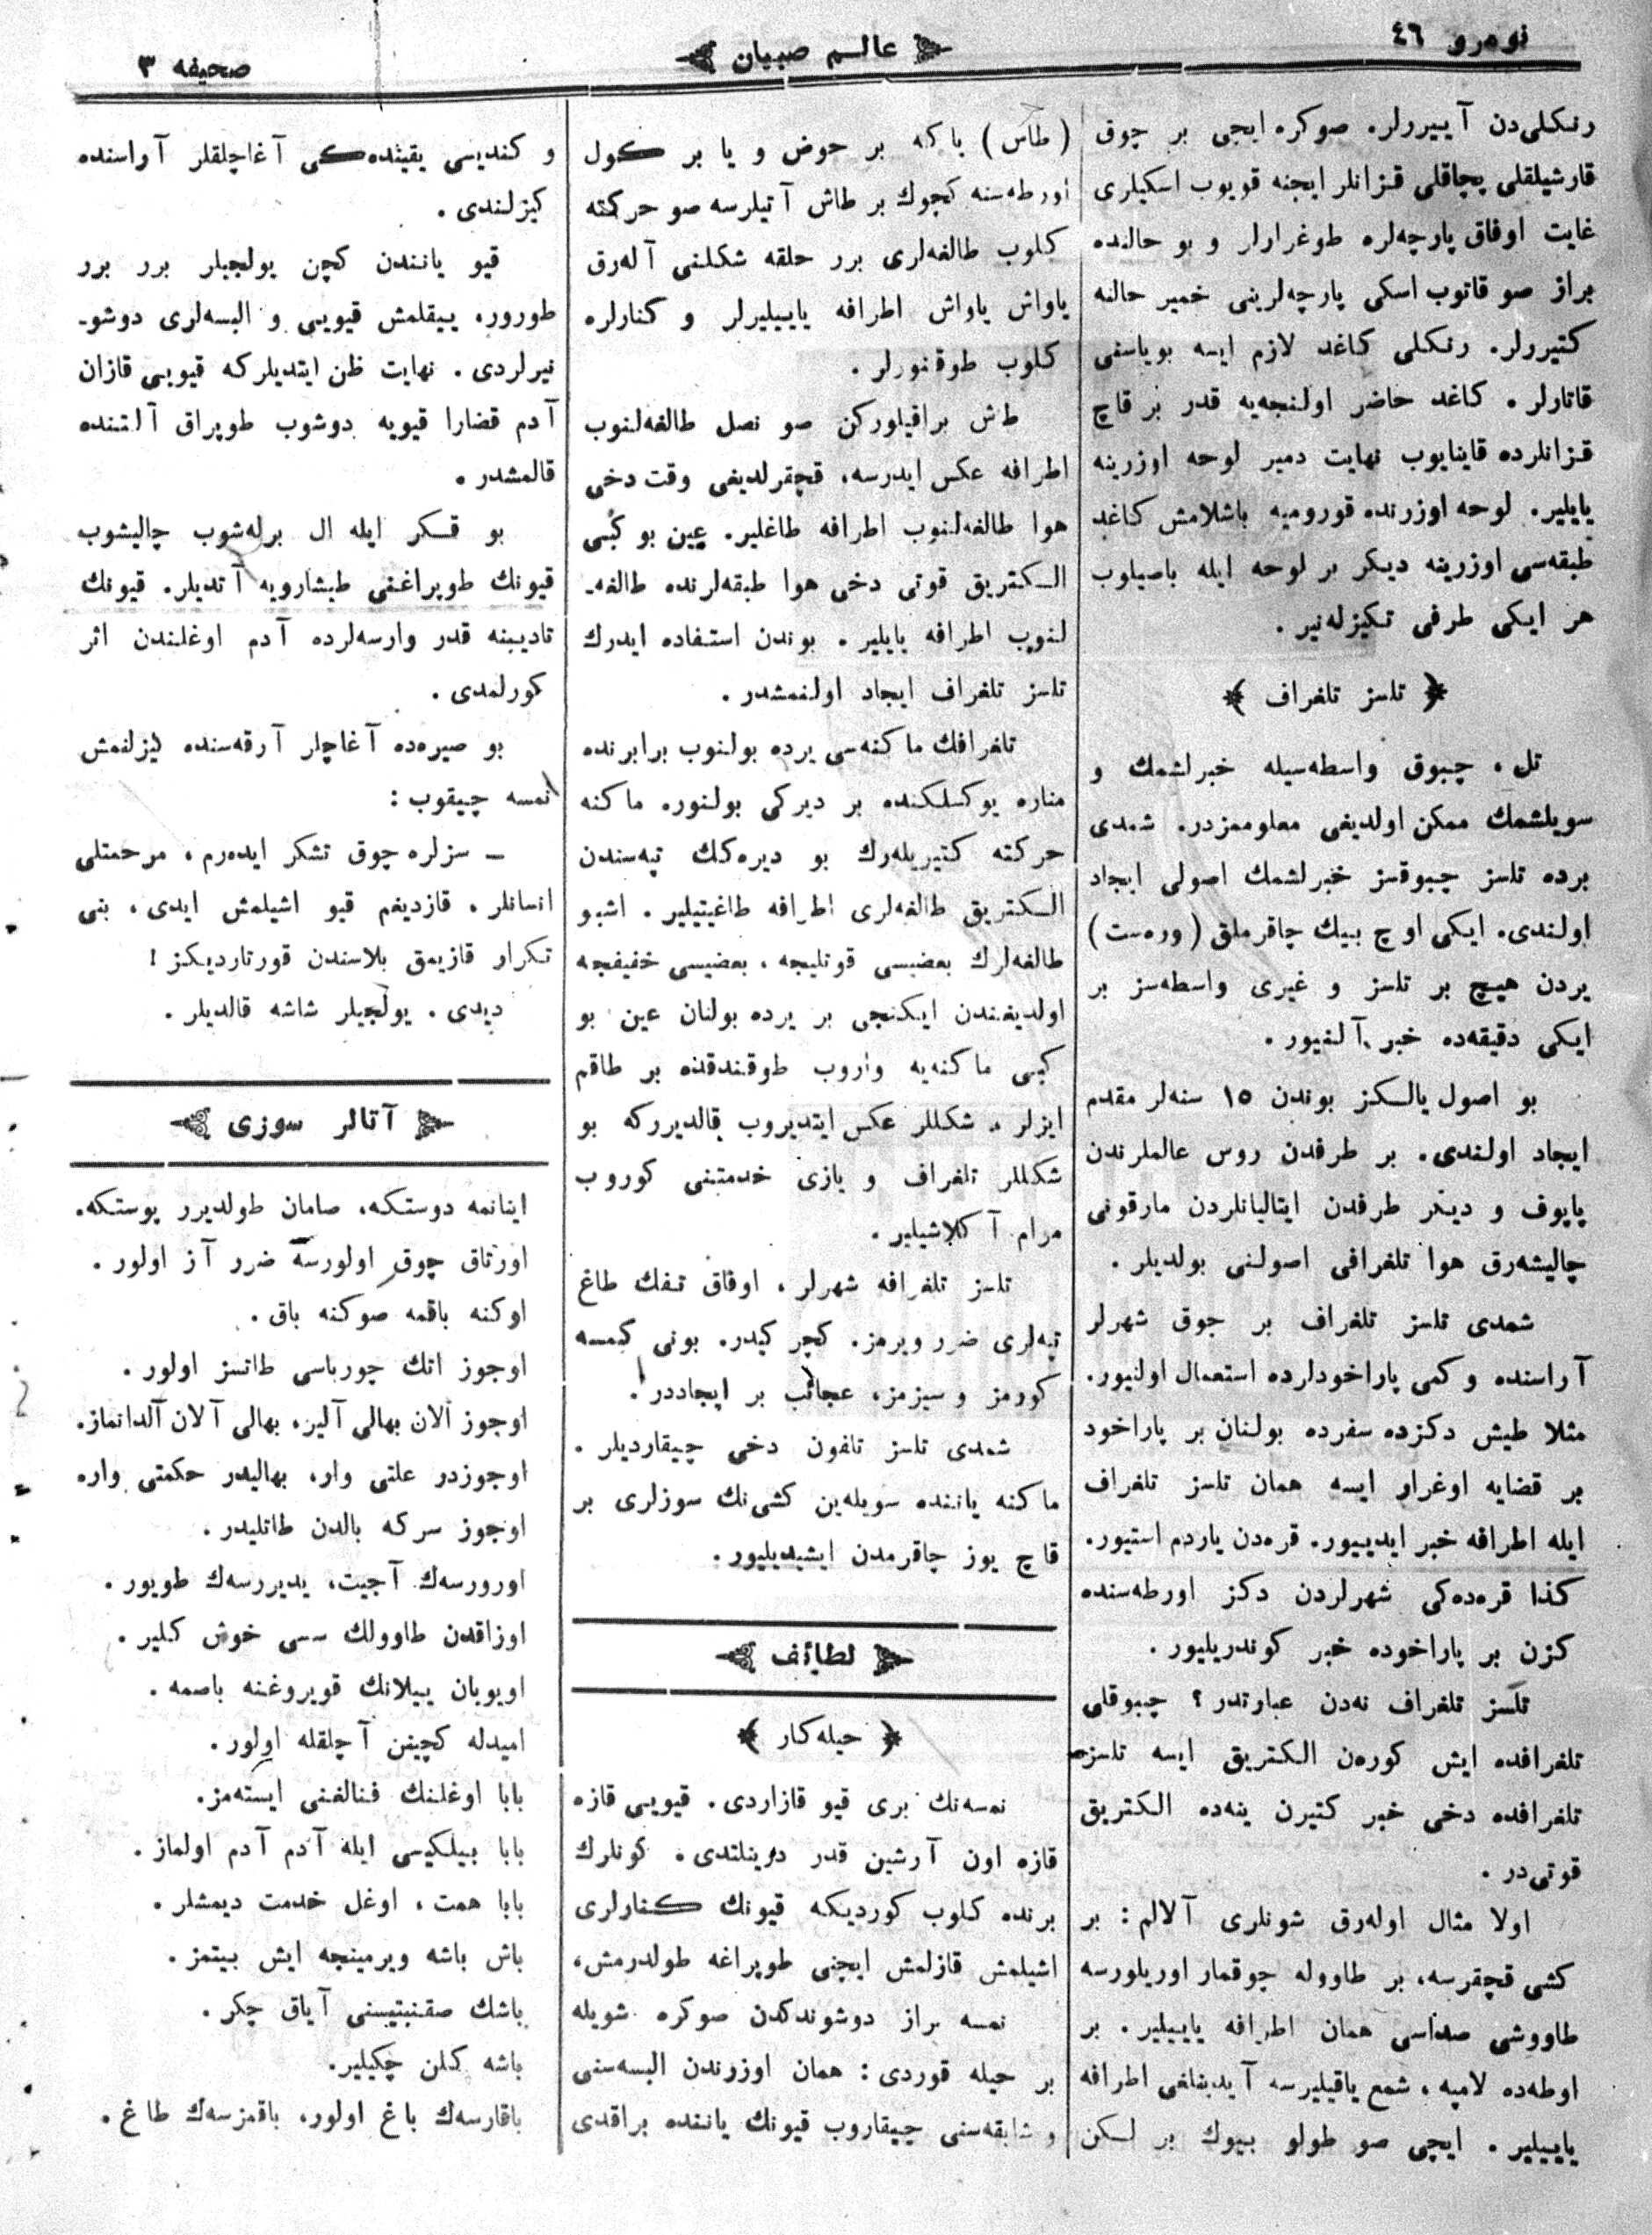 نومرو ٤٦
عالم صبيان
صحيفه ٣
رنكلى‌دن آييررلر. صوكره ايچى بر چوق
قارشيلقلى پچاقلى قزانلر ايچنه قويوب اسكيلرى
غايت اوفاق پارچه‌لره طوغرارلر و بو حالنده
براز صو قاتوب اسكى پارچه‌لرينى خمير حالنه
كتيررلر. رنكلى كاغد لازم ايسه بوياسنى
قاتارلر. كاغد حاضر اولنجه‌يه قدر بر قاچ
قزانلرده قاينايوب نهايت دمير لوحه اوزرينه
يايلير. لوحه اوزرنده قوروميه باشلامش كاغد
طبقه‌سى اوزرينه ديكر بر لوحه ايله باصيلوب
هر ايكى طرفى تكيزله‌نير.
﴿ تلسز تلغراف ﴾
تل، چبوق واسطه‌سيله خبرلشمك و
سويلشمك ممكن اولديغى معلوممزدر. شمدى
برده تلسز چبوقسز خبرلشمك اصولى ايجاد
اولندى. ايكى اوچ بيك چاقرملق (وره‌ست)
يردن هيچ بر تلسز و غيرى واسطه‌سز بر
ايكى دقيقه‌ده خبر آلنيور.
بو اصول يالكز بوندن ١٥ سنه‌لر مقدم
ايجاد اولندى. بر طرفدن روس عالملرندن
پاپوف و ديكر طرفدن ايتاليانلردن مارقونى
چاليشه‌رق هوا تلغرافى اصولنى بولديلر.
شمدى تلسز تلغراف بر جوق شهرلر
آراسنده و كمى پاراخودلرده استعمال اولنيور.
مثلا طيش دكزده سفرده بولنان بر پاراخود
بر قضايه اوغرار ايسه همان تلسز تلغراف
ايله اطرافه خبر ايدييور. قره‌دن ياردم استيور.
كذا قره‌ده‌كى شهرلردن دكز اورطه‌سنده
كزن بر پاراخوده خبر كوندريليور.
تلسز تلغراف نه‌دن عبارتدر؟ چبوقلى
تلغرافده ايش كوره‌ن الكتريق ايسه تلسز
تلغرافده دخى خبر كتيرن ينه‌ده الكتريق
قوتى‌در.
اولا مثال اوله‌رق شونلرى آلالم: بر
كشى قچقرسه، بر طاووله چوقمار اوريلورسه
طاووشى صداسى همان اطرافه ياييلير. بر
اوطه‌ده لامپه، شمع ياقيليرسه آيدينلغى اطرافه
ياييلير. ايچى صو طولو بيوك بر لكن
(طاس) ياكه بر حوض و يا بر كول
اورطه‌سنه كچوك بر طاش آتيلرسه صو حركته
كلوب طالغه‌لرى برر حلقه شكلنى آله‌رق
ياواش ياواش اطرافه ياييليرلر و كنارلره
كلوب طوقنورلر.
طاش براقيلوركن صو نصل طالغه‌لنوب
اطرافه عكس ايدرسه، قچقرلديغى وقت دخى
هوا طالغه‌لنوب اطرافه طاغلير. عين بو كبى
الكتريق قوتى دخى هوا طبقه‌لرنده طالغه‌ـ
لنوب اطرافه يايلير. بوندن استفاده ايدرك
تلسز تلغراف ايجاد اولنمشدر.
تلغرافك ماكنه‌سى يرده بولنوب برابرنده
مناره يوكسلكنده بر ديركى بولنور. ماكنه
حركته كتيريله‌رك بو ديره‌كك تپه‌سندن
الكتريق طالغه‌لرى اطرافه طاغيتيلير. اشبو
طالغه‌لرك بعضيسى قوتليجه، بعضيسى خفيفجه
اولديغندن ايكنجى بر يرده بولنان عين بو
كبى ماكنه‌يه واروب طوقندقده بر طاقم
ايزلر، شكللر عكس ايتديروب قالديرركه بو
شكللر تلغراف و يازى خدمتنى كوروب
مرام آكلاشيلير.
تلسز تلغرافه شهرلر، اوفاق تفك طاغ
تپه‌لرى ضرر ويرمز. كچر كيدر. بونى كيمسه
كورمز و سيزمز، عجائب بر ايجاددر.
شمدى تلسز تلفون دخى چيقارديلر.
ماكنه ياننده سويله‌ين كشى‌نك سوزلرى بر
قاچ يوز چاقرمدن ايشيديليور.
لطائف
﴿ حيله‌كار ﴾
نمسه‌نك برى قيو قازاردى. قيويى قازه
قازه اون آرشين قدر درينلتدى. كونلرك
برنده كلوب كورديكه قيونك كنارلرى
اشيلمش قازلمش ايچنى طوپراغه طولدرمش،
نمسه براز دوشوندكدن صوكره شويله
بر حيله قوردى: همان اوزرندن البسه‌سنى
و شابقه‌سنى چيقاروب قيونك ياننده براقدى
و كنديسى يقينده‌كى آغاچلقلر آراسنده
كيزلندى.
قيو ياننـدن كچن يولجيلر برر برر
طورور، ييقلمش قيويى و البسه‌لرى دوشو-
نيرلردى. نهايت ظن ايتديلركه قيويى قازان
آدم قضارا قيويه دوشوب طوپراق آلتنده
قالمشدر.
بو فكر ايله ال برله‌شوب چاليشوب
قيونك طوپراغنى طيشارويه آتديلر. قيونك
تاديبنه قدر وارسه‌لرده آدم اوغلندن اثر
كورلمدى.
بو صيره‌ده آغاچلر آرقه‌سنده كيزلنمش
نمسه چيقوب:
— سزلره چوق تشكر ايده‌رم، مرحمتلى
انسانلر. قازديغم قيو اشيلمش ايدى، بنى
تكرار قازيمق بلاسندن قورتارديكز!
ديدى. يولجيلر شاشه قالديلر.
آتالر سوزى
اينانمه دوستكه، صامان طولديرر پوستكه.
اورتاق چوق اولورسه ضرر آز اولور.
اوكنه باقمه صوكنه باق.
اوجوز اتك چورباسى طاتسز اولور.
اوجوز آلان بهالى آلير، بهالى آلان آلدانماز.
اوجوزدر علتى وار، بهاليدر حكمتى وار.
اوجوز سركه بالدن طاتليدر.
اورورسه‌ك آجيت، يديررسه‌ك طويور.
اوزاقدن طاوولك سسى خوش كلير.
اويويان ييلانك قويروغنه باصمه.
اميدله كچينن آچلقله اولور.
بابا اوغلنك فنالغنى ايسته‌مز.
بابا بيلكيسى ايله آدم آدم اولماز.
بابا همت، اوغل خدمت ديمشلر.
باش باشه ويرمينجه ايش بيتمز.
باشك صقنتيسنى آياق چكر.
باشه كلن چكيلير.
باقارسه‌ك باغ اولور، باقمزسه‌ك طاغ.